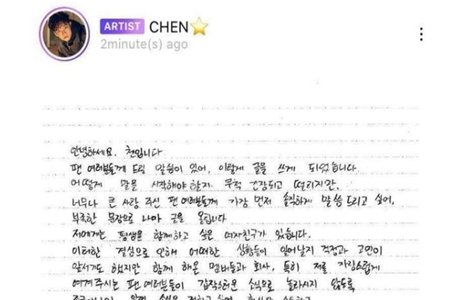 ARTIST CHEN
2minute(s) ago
안녕하세요. 첸입니다
팬 여러분들께 드릴 말씀이 있어, 이렇게 글을 쓰게 되었습니다.
어떻게 말을 시작해야할지 무척 긴장되고 떨리지만,
너무나 큰 사랑 주신 팬 여러분들께 가장 먼저 솔직하게 말씀 드리고 싶어,
부족한 문장으로 나마 글을 올립니다
저에게는 평생을 함께하고 싶은 여자친구가 있습니다.
이러한 결심으로 인해 어떠한 상황들이 일어날지 걱정과 고민이
앞서기도 했지만 함께 해온 멤버들과 회사, 특히 저를 자랑스럽게
여겨주시는 팬 여러분들이 갑작스러운 소식으로 놀라시지 않도록